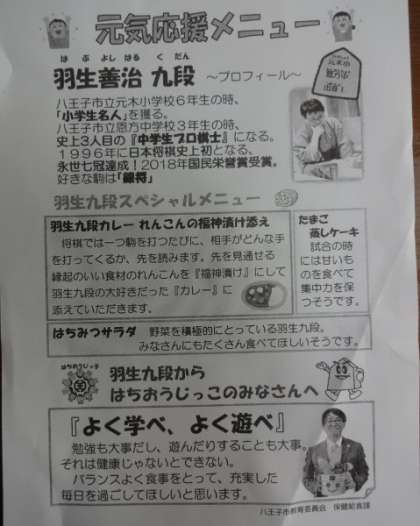 元気応援メニュー
は ぶ よし はる く だん
羽生善治 九段 ～プロフィール～
八王子市立元木小学校6年生の時、
「小学生名人」を獲る。
八王子市立恩方中学校3年生の時、
史上3人目の『中学生プロ棋士』になる。
1996年に日本将棋史上初となる、
永世七冠達成！2018年国民栄誉賞受賞。
好きな駒は「銀将」
羽生九段スペシャルメニュー
羽生九段カレー れんこんの福神漬け添え
将棋では一つ駒を打つたびに、相手がどんな手
を打ってくるか、先を読みます。先を見通せる
縁起のいい食材のれんこんを『福神漬け』にして
羽生九段の大好きだった『カレー』に
添えていただきます。
たまご
蒸しケーキ
試合の時
には甘いも
のを食べて
集中力を保
つそうです。
はちみつサラダ 野菜を積極的にとっている羽生九段。
みなさんにもたくさん食べてほしいそうです。
はちおうじっ子
羽生九段から
はちおうじっこのみなさんへ
『よく学べ、よく遊べ』
勉強も大事だし、遊んだりすることも大事。
それは健康じゃないとできない。
バランスよく食事をとって、充実した
毎日を過ごしてほしいと思います。
八王子市教育委員会 保健給食課